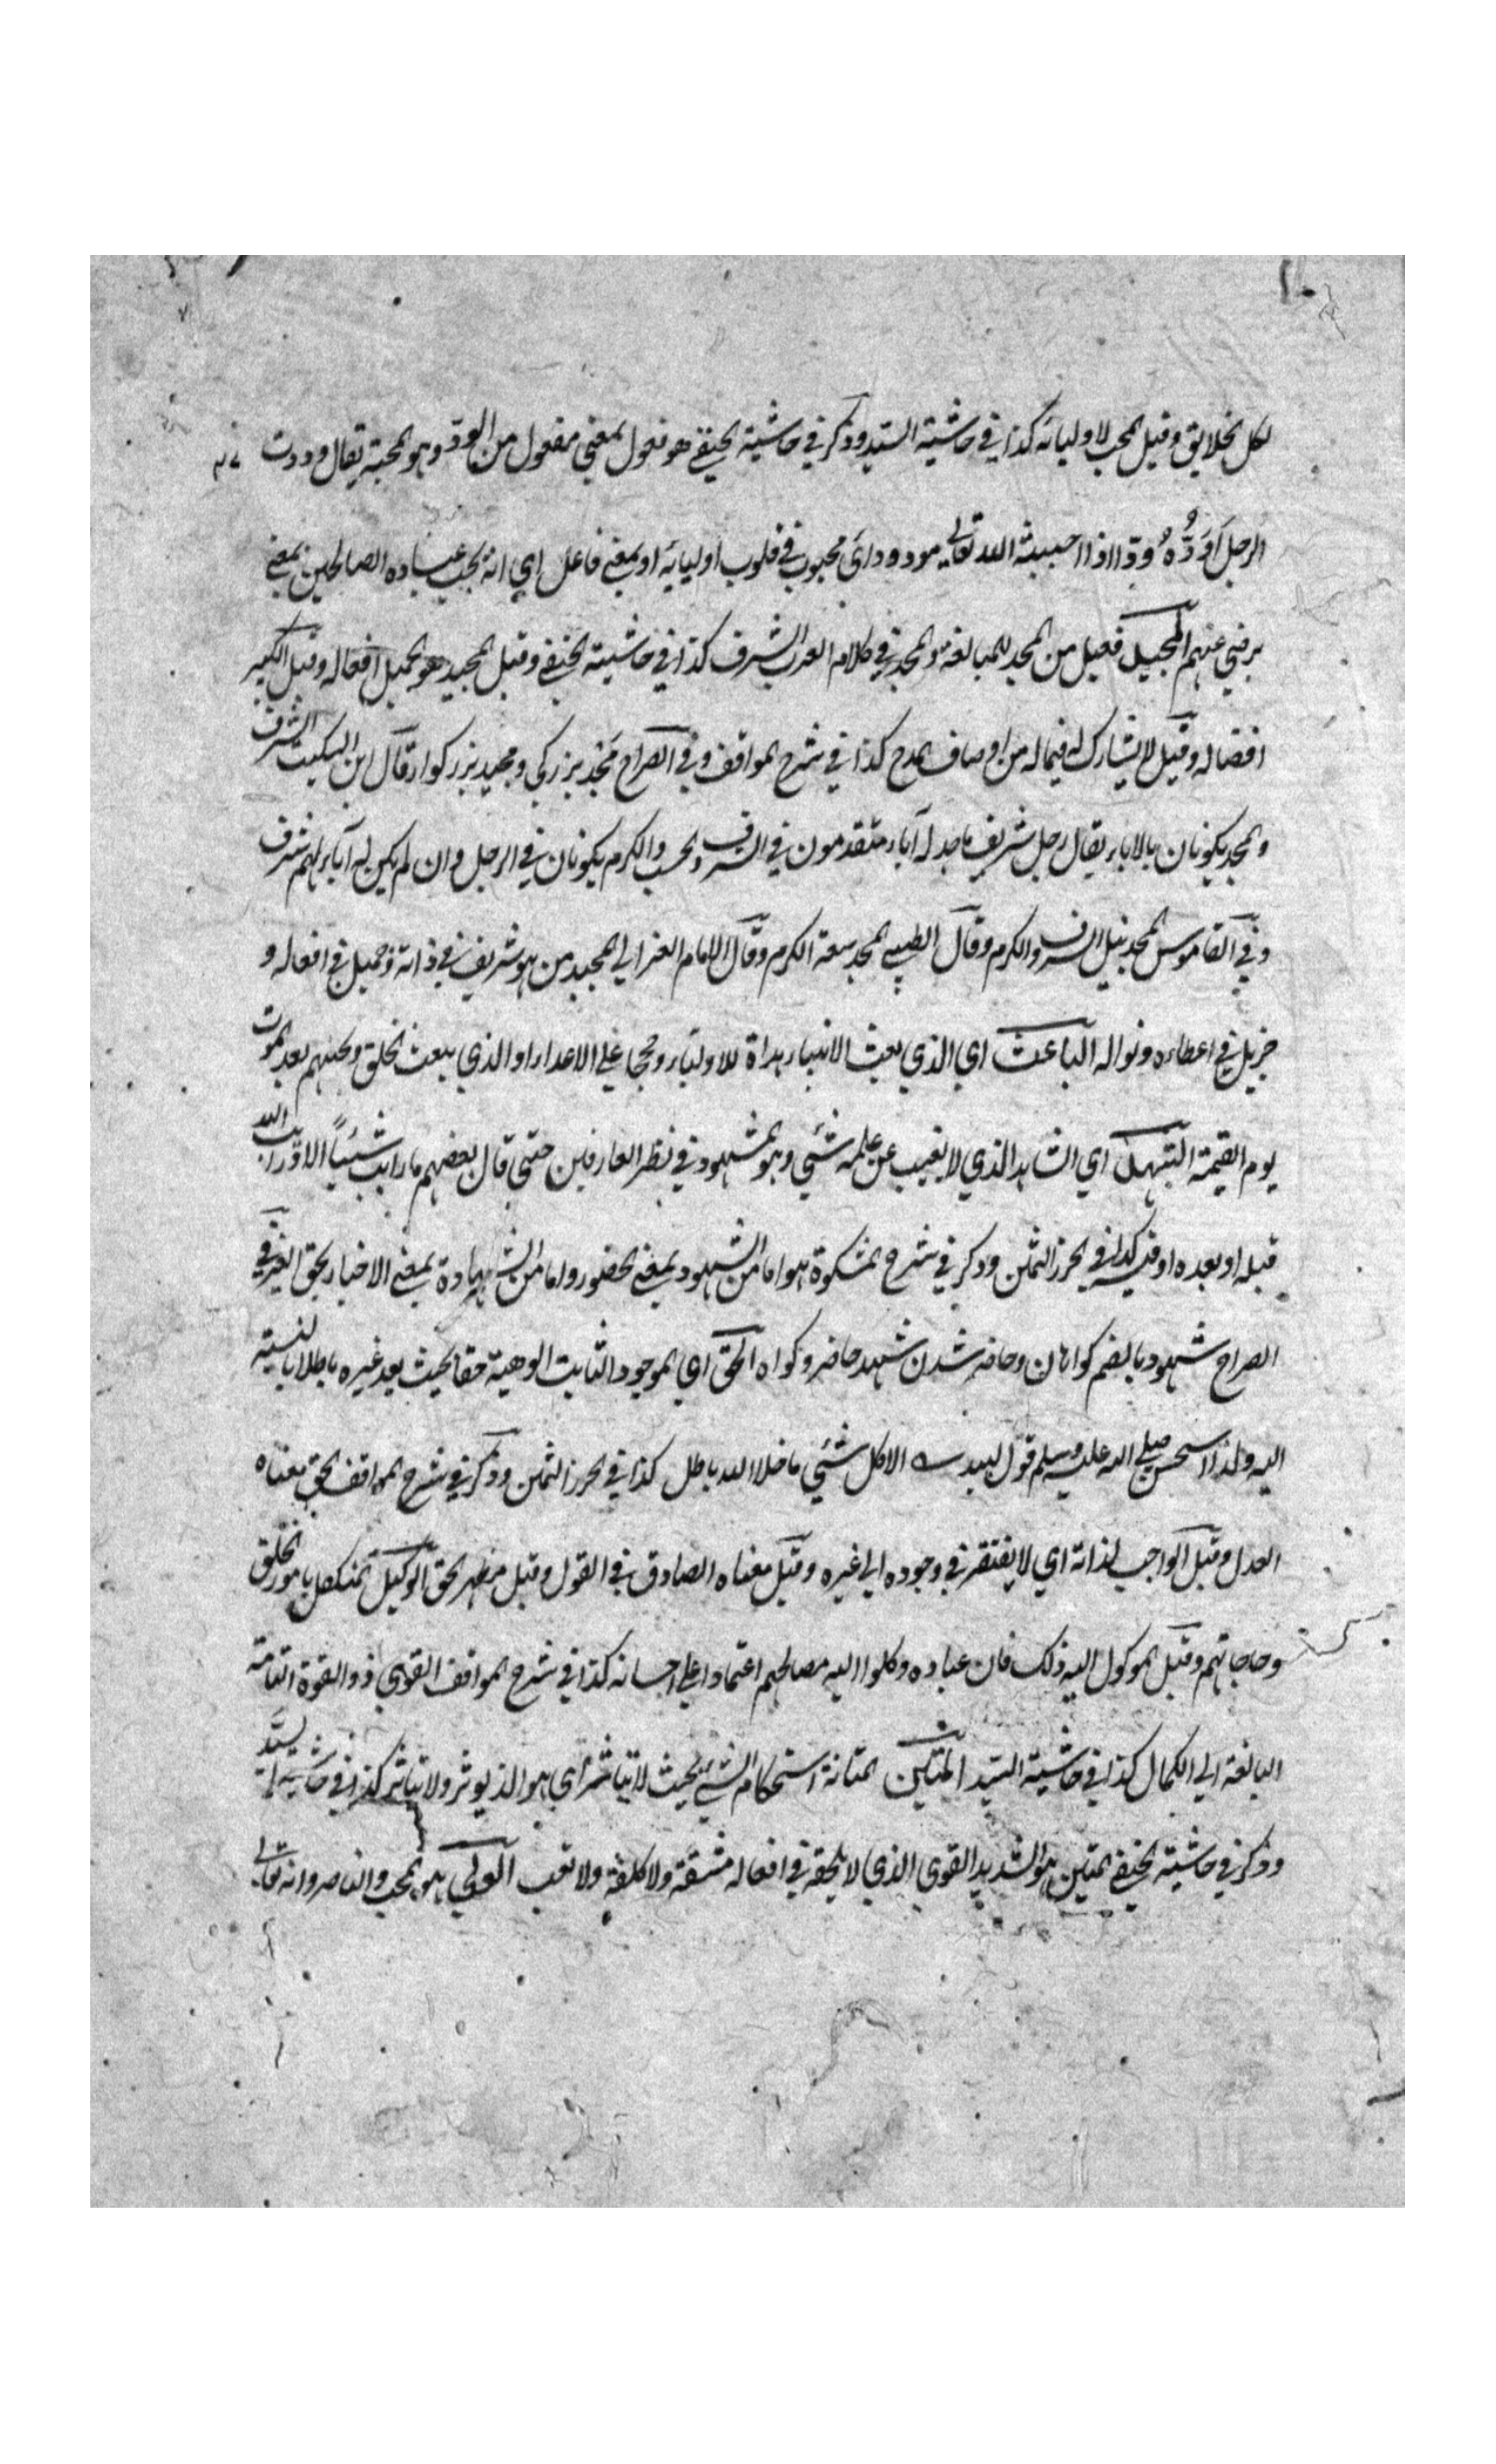 لكل الخلايق وقيل المحب لاوليائه كذا في حاشية السيد وذكر في حاشية الحنفي هو فعول بمعنى مفعول من الود وهو المحبة يقال وددت
الرجل اَوَدُّهُ ودّا اذا احببته الله تعالى مودود اى محبوب في قلوب اوليائه او بمعنى فاعل اي انه يحب عباده الصالحين بمعنى
يرضى عنهم المجيد فعيل من المجد للمبالغة والمجد في كلام العرب الشرف كذا في حاشية الحنفي وقيل المجيد هو الجميل افعاله وقيل الكثير
افضاله وقيل لا يشارك له فيما له من اوصاف المدح كذا في شرح المواقف وفي الصراح مَجْد بزركي ومجيد بزركوار قال ابن السكيت الشرف
والمجد يكونان بالاباء يقال رجل شريف ماجد له آباء متقدمون في الشرف والحسب والكرم يكونان في الرجل وان لم يكن له آباء لهم شرف
وفي القاموس المجد نيل الشرف والكرم وقال الطيبي المجد سعة الكرم وقال الامام الغزالي المجيد من هو شريف في ذاته وجميل في افعاله و
جزيل في اعطاءه ونواله الباعث اي الذي يبعث الانبياء هداة للاولياء وحججا على الاعداء او الذي يبعث الخلق ويحييهم بعد الموت
يوم القيمة الشهيد اي الشاهد الذي لا يغيب عن علمه شئ وهو المشهود في نظر العارفين حتى قال بعضهم ما رايت شيئاً الا ورايت الله
قبله او بعده او فيه كذا في الحرز الثمين وذكر في شرح المشكوة هو اما من الشهود بمعنى الحضور واما من الشهادة بمعنى الاخبار بحق الغير في
الصراح شهود بالضم كواهان وحاضر شدن شهيد حاضر وكواه الحق اي الموجود الثابت الوهية حقا بحيث يعد غيره باطلا بالنسبة
اليه ولذا استحسن صلى الله عليه وسلم قول لبيد الا كل شئ ما خلا الله باطل كذا في الحرز الثمين وذكر في شرح المواقف الحق معناه
العدل وقيل الواجب لذاته اي لا يفتقر في وجوده الى غيره وقيل معناه الصادق في القول وقيل مظهر الحق الوكيل المتكفل بامور الخلق
وحاجاتهم وقيل الموكول اليه ذلك فان عباده وكلوا اليه مصالحهم اعتمادا على احسانه كذا في شرح المواقف القوى ذو القوة التامة
البالغة الى الكمال كذا في حاشية السيد المتين المتانة استحكام الشئ بحيث لا يتاثر اي هو الذي يوثر ولا يتاثر كذا في حاشية السيد
وذكر في حاشية الحنفي المتين هو الشديد القوى الذي لا يلحقه في افعاله مشقة ولا كلفة ولا تعب الولي هو المحب والناصر وانه تعالى